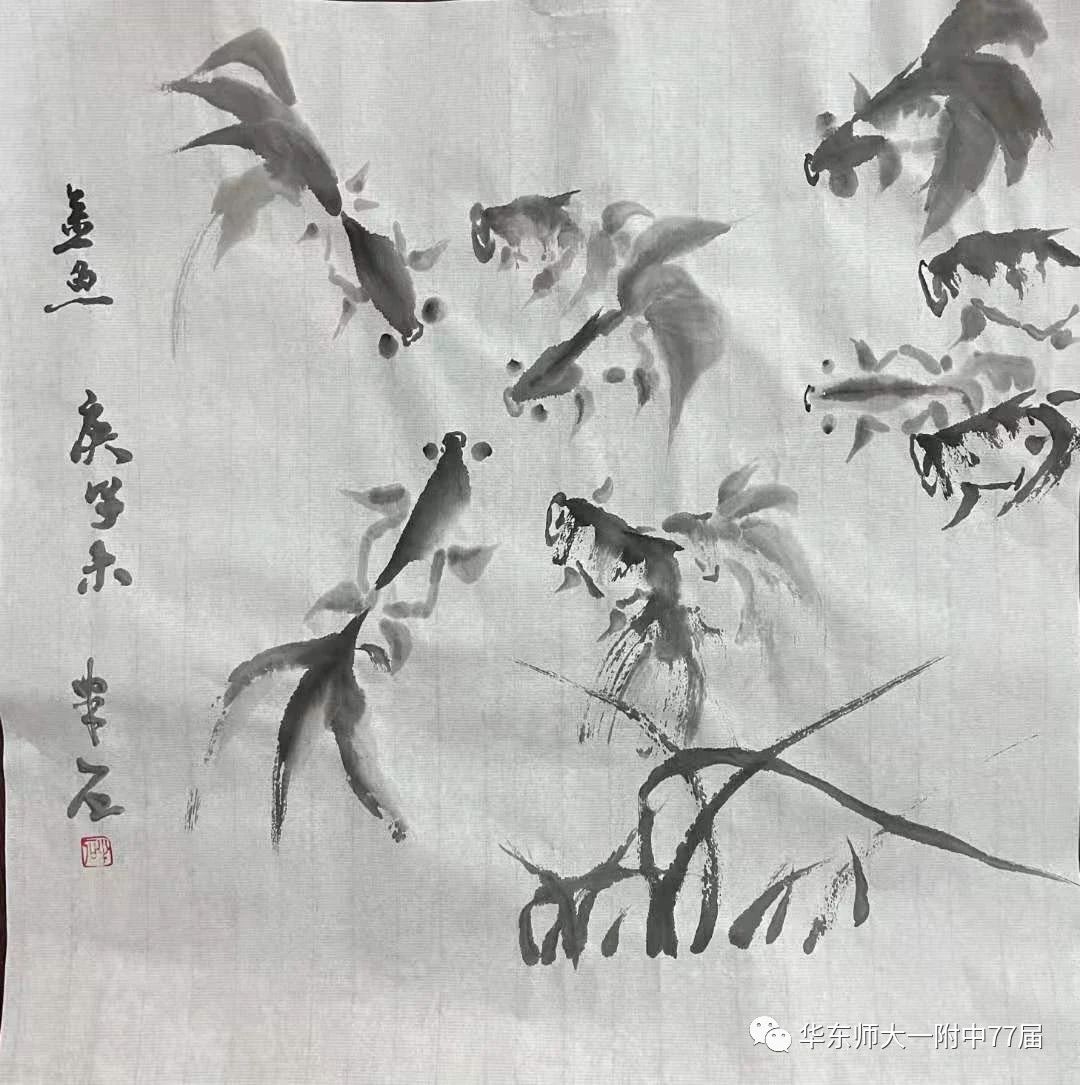 金鱼
庚子冬
半石
华东师大一附中77届